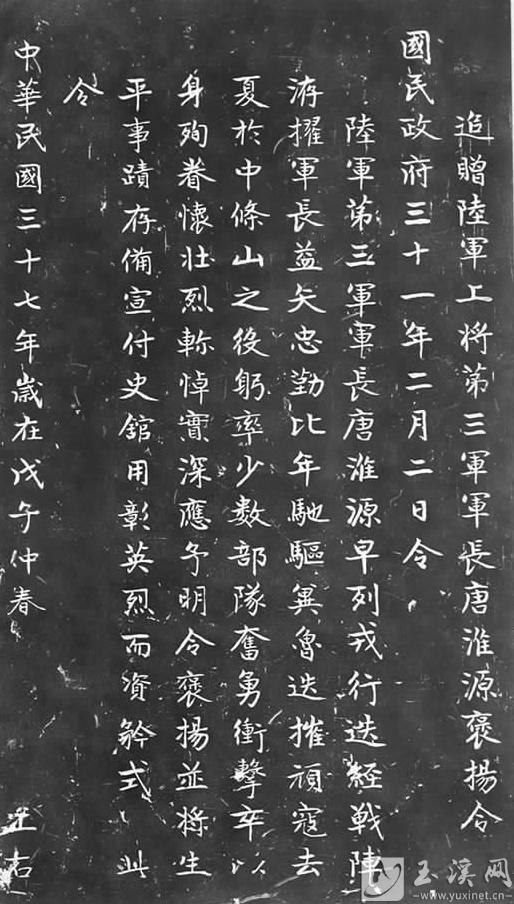 追贈陸軍上將第三軍軍長唐淮源褒揚令
國民政府三十一年二月二日令
陸軍第三軍軍長唐淮源早列戎行迭經戰陣
洊擢軍長益矢忠勤比年馳驅冀魯迭摧頑寇去
夏於中條山之役躬率少數部隊奮勇衝擊卒以
身殉眷懷壯烈軫悼實深應予明令褒揚並將生
平事蹟存備宣付史館用彰英烈而資矜式此
令
中華民國三十七年歲在戊子仲春
玉溪网
www.yuxinet.cn